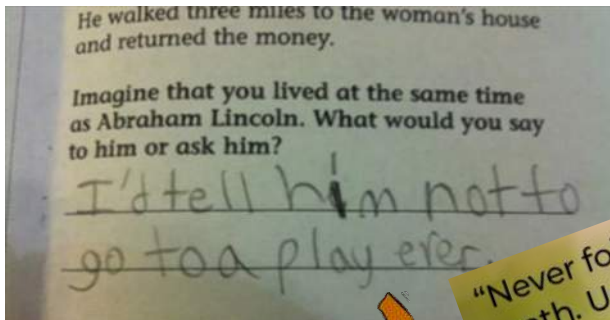 He walked three miles to the woman's house
and returned the money.
Imagine that you lived at the same time
as Abraham Lincoln. What would you say
to him or ask him?
I'd tell him not to
go to a play ever.
"Never fo
th. U